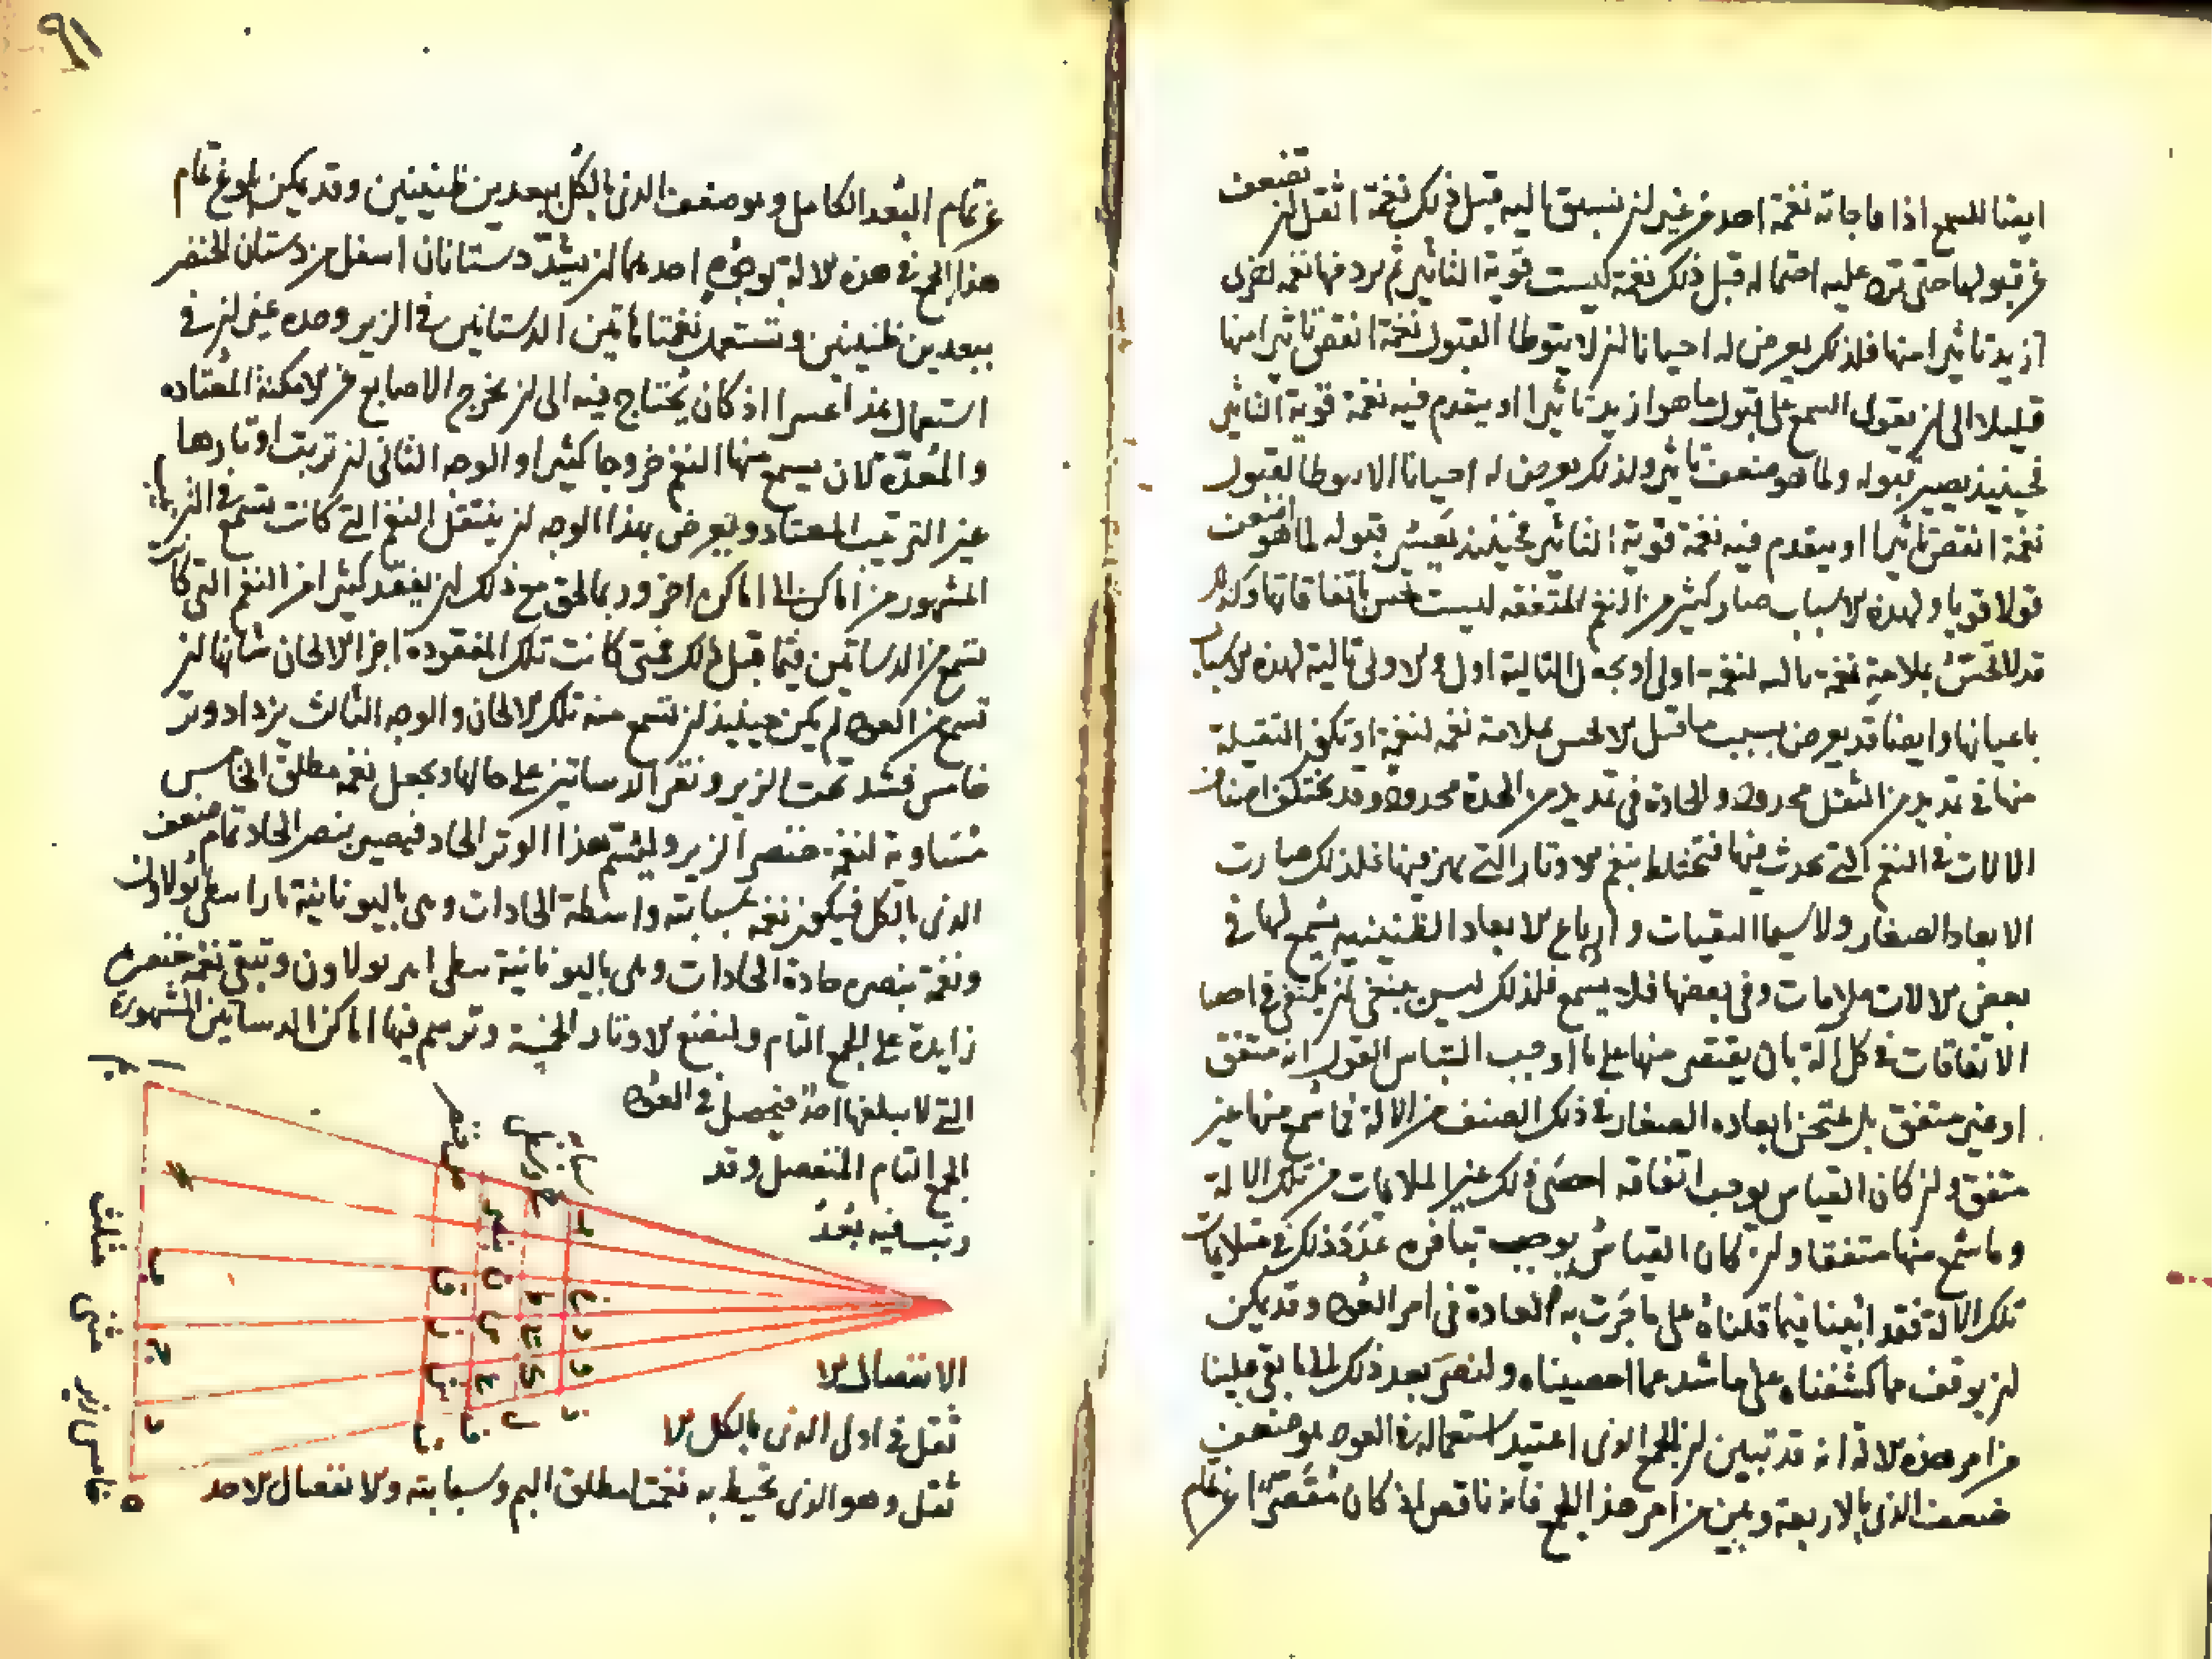 ايضا للسمع اذا ما جاته نغمة احد من غير ان يسبق اليه قبل ذلك نغمة اثقل ان تضعف
عن قبولها حتى ترد عليه احتماله قبل ذلك نغمة ليست قوية التاثير ثم يردفها نغمة اخرى
ازيد تاثيرا منها فلذلك يعرض له احيانا ان لا يتوطا لقبول نغمة انقص تاثيرا منها
قليلا الى ان يقوى السمع على قبول ما هو ازيد تاثيرا او يتقدم فيه نغمة قوية التاثير
فحينيذ يصير قبوله ولما هو ضعف تاثير ولذلك يعرض له احيانا الا يوطا لقبول
نغمة انقص تاثيرا او يتقدم فيه نغمة قوية التاثير فحينيذ يصير قبوله لما هو اضعف
قولا قويا ولهذه الاسباب صار كثير من النغم المتفقه ليست تحس باتفاقاتها وكذلك
قد لا تحس بملامة نغمة تاليه لنغمة اولى او يجعل التالية اولى والاولى تالية لهذه الاسباب
باعيانها وايضا قد يعرض بسبب ما قبل الا تحس بملامة نغمه لنغمة اذ تكون الثقيلة
منها في تمديد من الثقل محدود والحادة في تمديد من الحدة محدود وقد تختلف اصناف
الالات في النغم التي تحدث فيها فتختلط بنغم الاوتار التي يهز فيها فلذلك صارت
الابعاد الصغار ولا سيما البقيات وارباع الابعاد الطنينيه يسمع لها في
بعض الالات ملامات وفي بعضها فلا يسمع فلذلك ليس ينبغي ان يكتفى في احصا
الاتفاقات في كل آلة بان يقتصر منها على ما اوجب القياس القول انه متفق
او غير متفق بل يمتحن ابعاده الصغار في ذلك الصنف من الالة فما سمع منها غير
متفق وان كان القياس يوجب اتفاقه احصى ذلك غير الملايمات من تلك الالة
وما سمع منها متفقا وان كان القياس يوجب تنافره عُدّ ذلك في متلايمات
تلك الآلة فقد اتينا فيما قلناه على ما جرت به العادة في امر العود وقد يمكن
ان يوقف مما كشفناه على ما شد عما احصيناه ولنصر بعد ذلك الى ما بقي علينا
من امر هذه الالة انه قد تبين ان الجمع الذي اعتيد استعماله في العود هو ضعف
ضعف الذي بالاربعة وبين من امر هذا الجمع فانه ناقص اذ كان مقصرا عن تمام
٩١
عن تمام البعد الكامل وهو ضعف الذي بالكل ببعدين طنينيين وقد يمكن بلوغ تمام
هذا الجمع في هذه الالة بوجوه احدهما ان يشد دستانان اسفل من دستان الخنصر
ببعدين طنينيين وتستعمل نغمتا هاتين الدستانين في الزير وحده غير ان في
استعمال هذا عسرا اذ كان يحتاج فيه الى ان يخرج الاصابع من الامكنة المعتاده
والمعدّة كان يسمع منها النغم خروجا كثيرا والوجه الثاني ان ترتب اوتارها
غير الترتيب المعتاد ويعرض بهذا الوجه ان ينتقل النغم التي كانت تسمع في الترتيب
المشهور من اماكن الى اماكن اخر وربما لحق مع ذلك ان يفقد كثيرا من النغم التي كانت
تسمع من الدساتين فيما قبل ذلك فمتى كانت تلك المفقوده اجزا الالحان شانها ان
تسمع من العود لم يمكن حينيذ ان تسمع منه تلك الالحان والوجه الثالث يزداد وتر
خامس فشد تحت الزير ونقر الدساتين على حالها ويجعل نغمه مطلق الخامس
مساوية لنغمة خنصر الزير وليسم هذا الوتر الحاد فيصير بنصر الحاد تمام ضعف
الذي بالكل فيكون نغمة سبابته واسطة الحادات وهي باليونانية
ونغمة بنصره حادة الحادات وهي باليونانية وتبقى نغمة خنصره
زايدة على الجمع التام ولنضع الاوتار الخمسة ونرسم فيها اماكن الدساتين المشهورة
التي لا سيلغها احد فيحصل في العود
الجمع التام المنفصل وقد
رتب فيه بعد
الانفصال الا
ثقل في اول الذي بالكل الا
ثقل وهو الذي تحيط به نغمتا مطلق البم وسبابته والانفصال الاحد
ا
ج
د
ه
مثلث
مثنى
زير
خامس